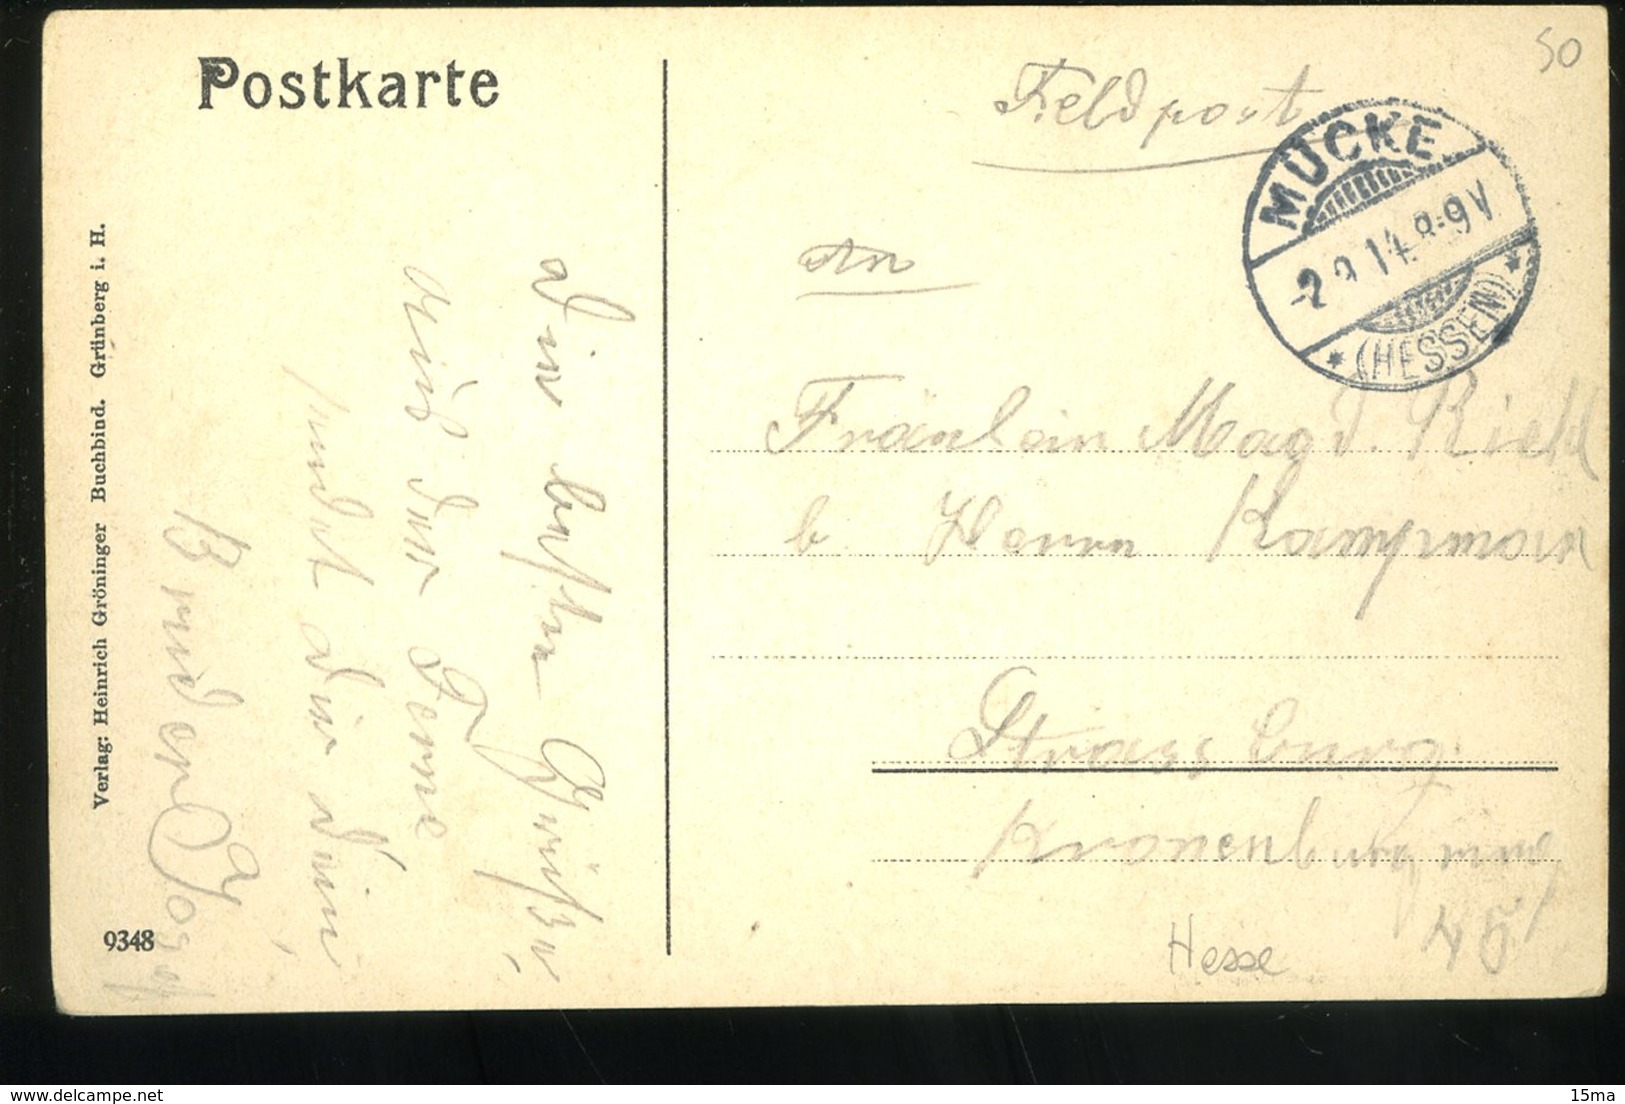 Postkarte
Feldpost
50
MÜCKE
-2.9.14.8-9V.
* (HESSEN) *
An
Fräulein Magd. Riehl
b Herrn Kampmann
Strassburg
Kronenburgring
45
Hesse
Die besten Grüße
aus der Ferne
sendet dir dein
Bruder Josef
Verlag: Heinrich Gröninger Buchbind. Grünberg i. H.
9348
15ma